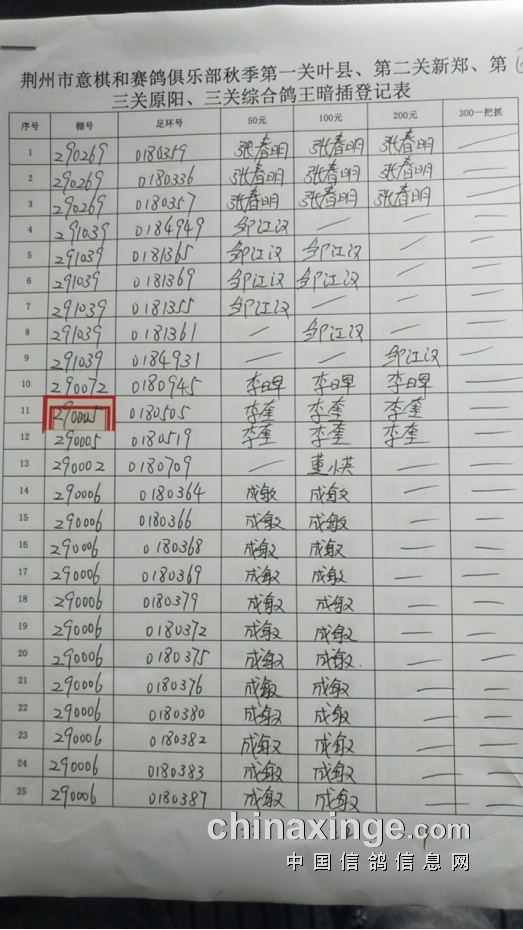 荆州市意棋和赛鸽俱乐部秋季第一关叶县、第二关新郑、第
三关原阳、三关综合鸽王暗插登记表
序号 棚号 足环号 50元 100元 200元 300一把抓
1 290269 0180359 张春明 张春明 张春明 —
2 290269 0180336 张春明 张春明 张春明 —
3 290269 0180357 张春明 张春明 张春明 —
4 291039 0184949 邹江汉 — — —
5 291039 0181365 邹江汉 邹江汉 — —
6 291039 0181369 邹江汉 邹江汉 — —
7 291039 0181355 邹江汉 — — —
8 291039 0181361 — 邹江汉 — —
9 291039 0184931 — — 邹江汉 —
10 290072 0180945 李早 李早 李早 —
11 290005 0180505 李奎 李奎 李奎 —
12 290005 0180519 李奎 李奎 李奎 —
13 290002 0180709 — 董小英 — —
14 290006 0180364 成敏 成敏 — —
15 290006 0180366 成敏 成敏 — —
16 290006 0180368 成敏 成敏 — —
17 290006 0180369 成敏 成敏 — —
18 290006 0180379 成敏 成敏 — —
19 290006 0180372 成敏 成敏 — —
20 290006 0180375 成敏 成敏 — —
21 290006 0180376 成敏 成敏 — —
22 290006 0180380 成敏 成敏 — —
23 290006 0180382 成敏 成敏 — —
24 290006 0180383 成敏 成敏 — —
25 290006 0180387 成敏 成敏 — —
chinaxinge.com
中国信鸽信息网